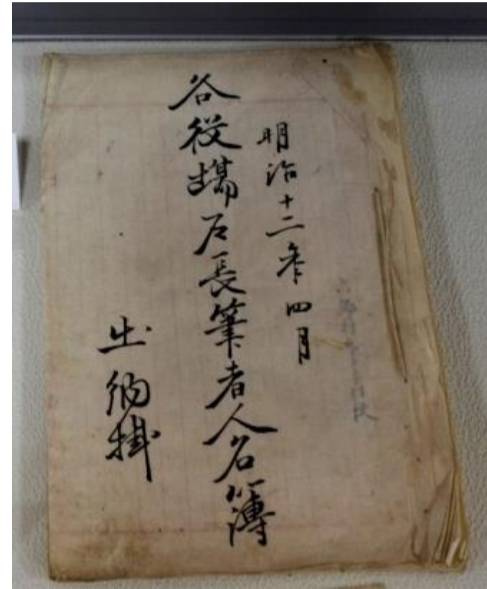 明治十二年四月
各役場戸長筆者人名簿
出納掛